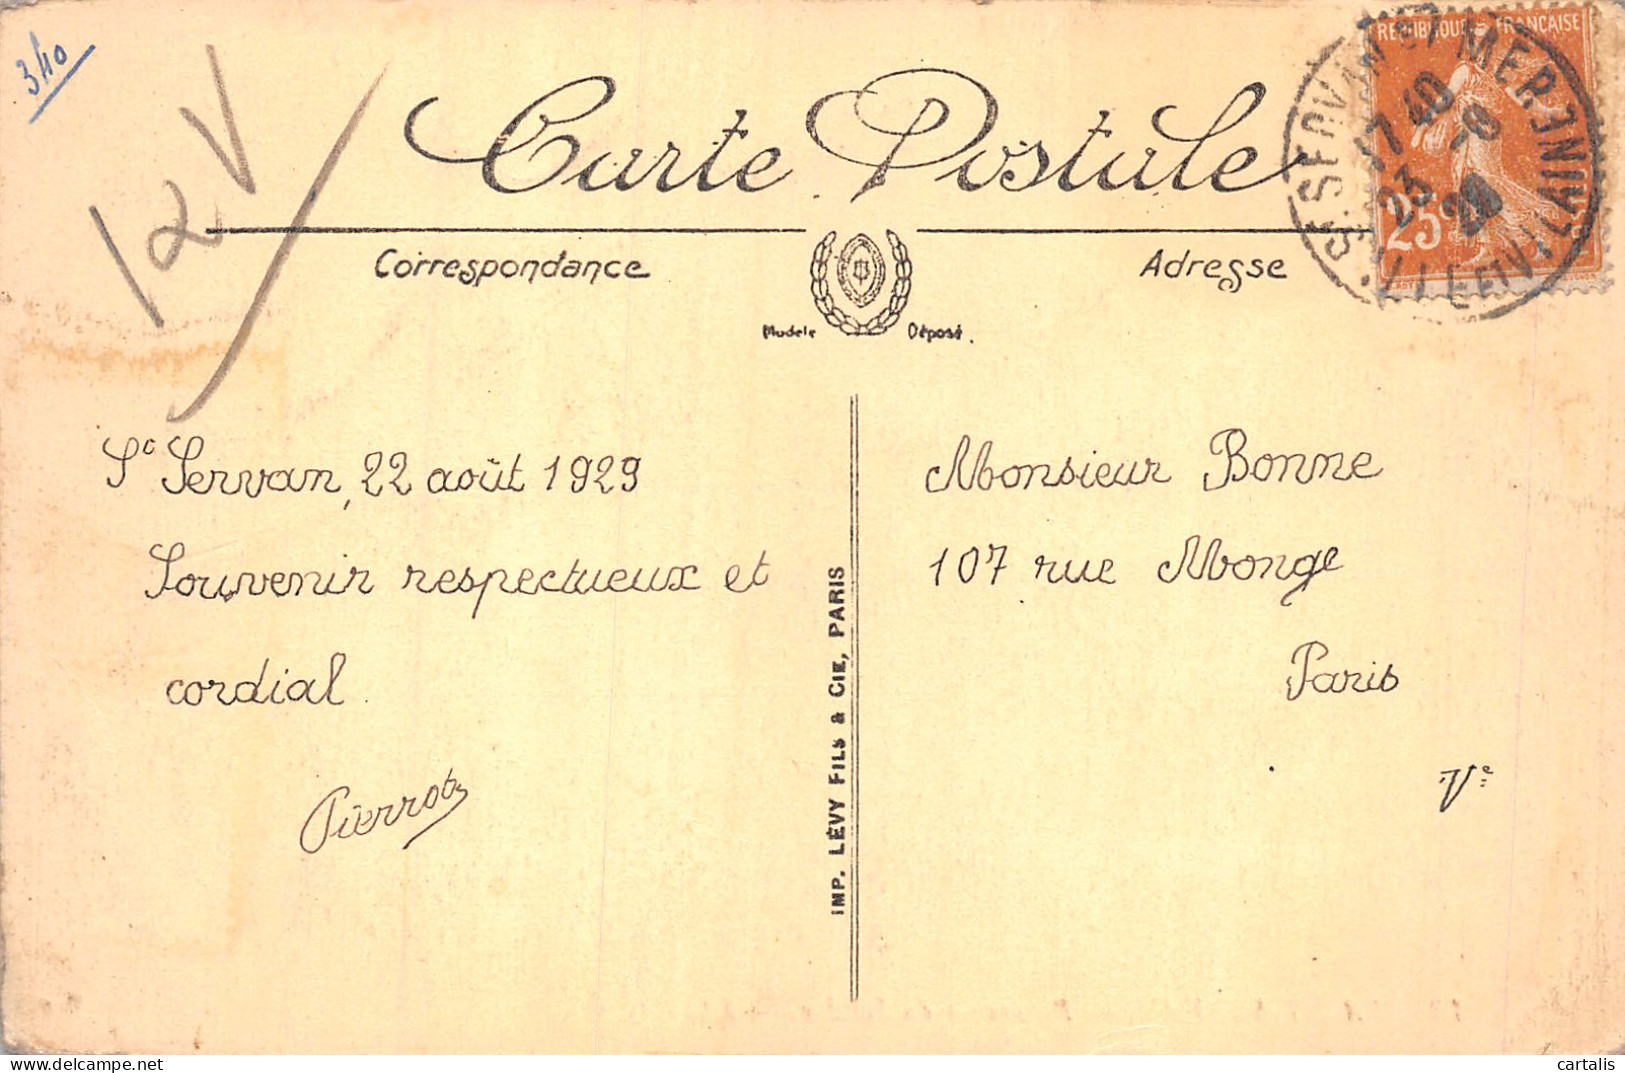 340
12V
Carte Postale
Correspondance
Adresse
Modèle Déposé.
REPUBLIQUE FRANÇAISE
25c
ST SERVAN SUR MER
17 40
23 -8
29
ILLE ET VILAINE
St Servan, 22 août 1929
Souvenir respectueux et
cordial.
Pierrot
IMP. LÉVY FILS & CIE, PARIS
Monsieur Bonne
107 rue Monge
Paris
Ve
cartalis